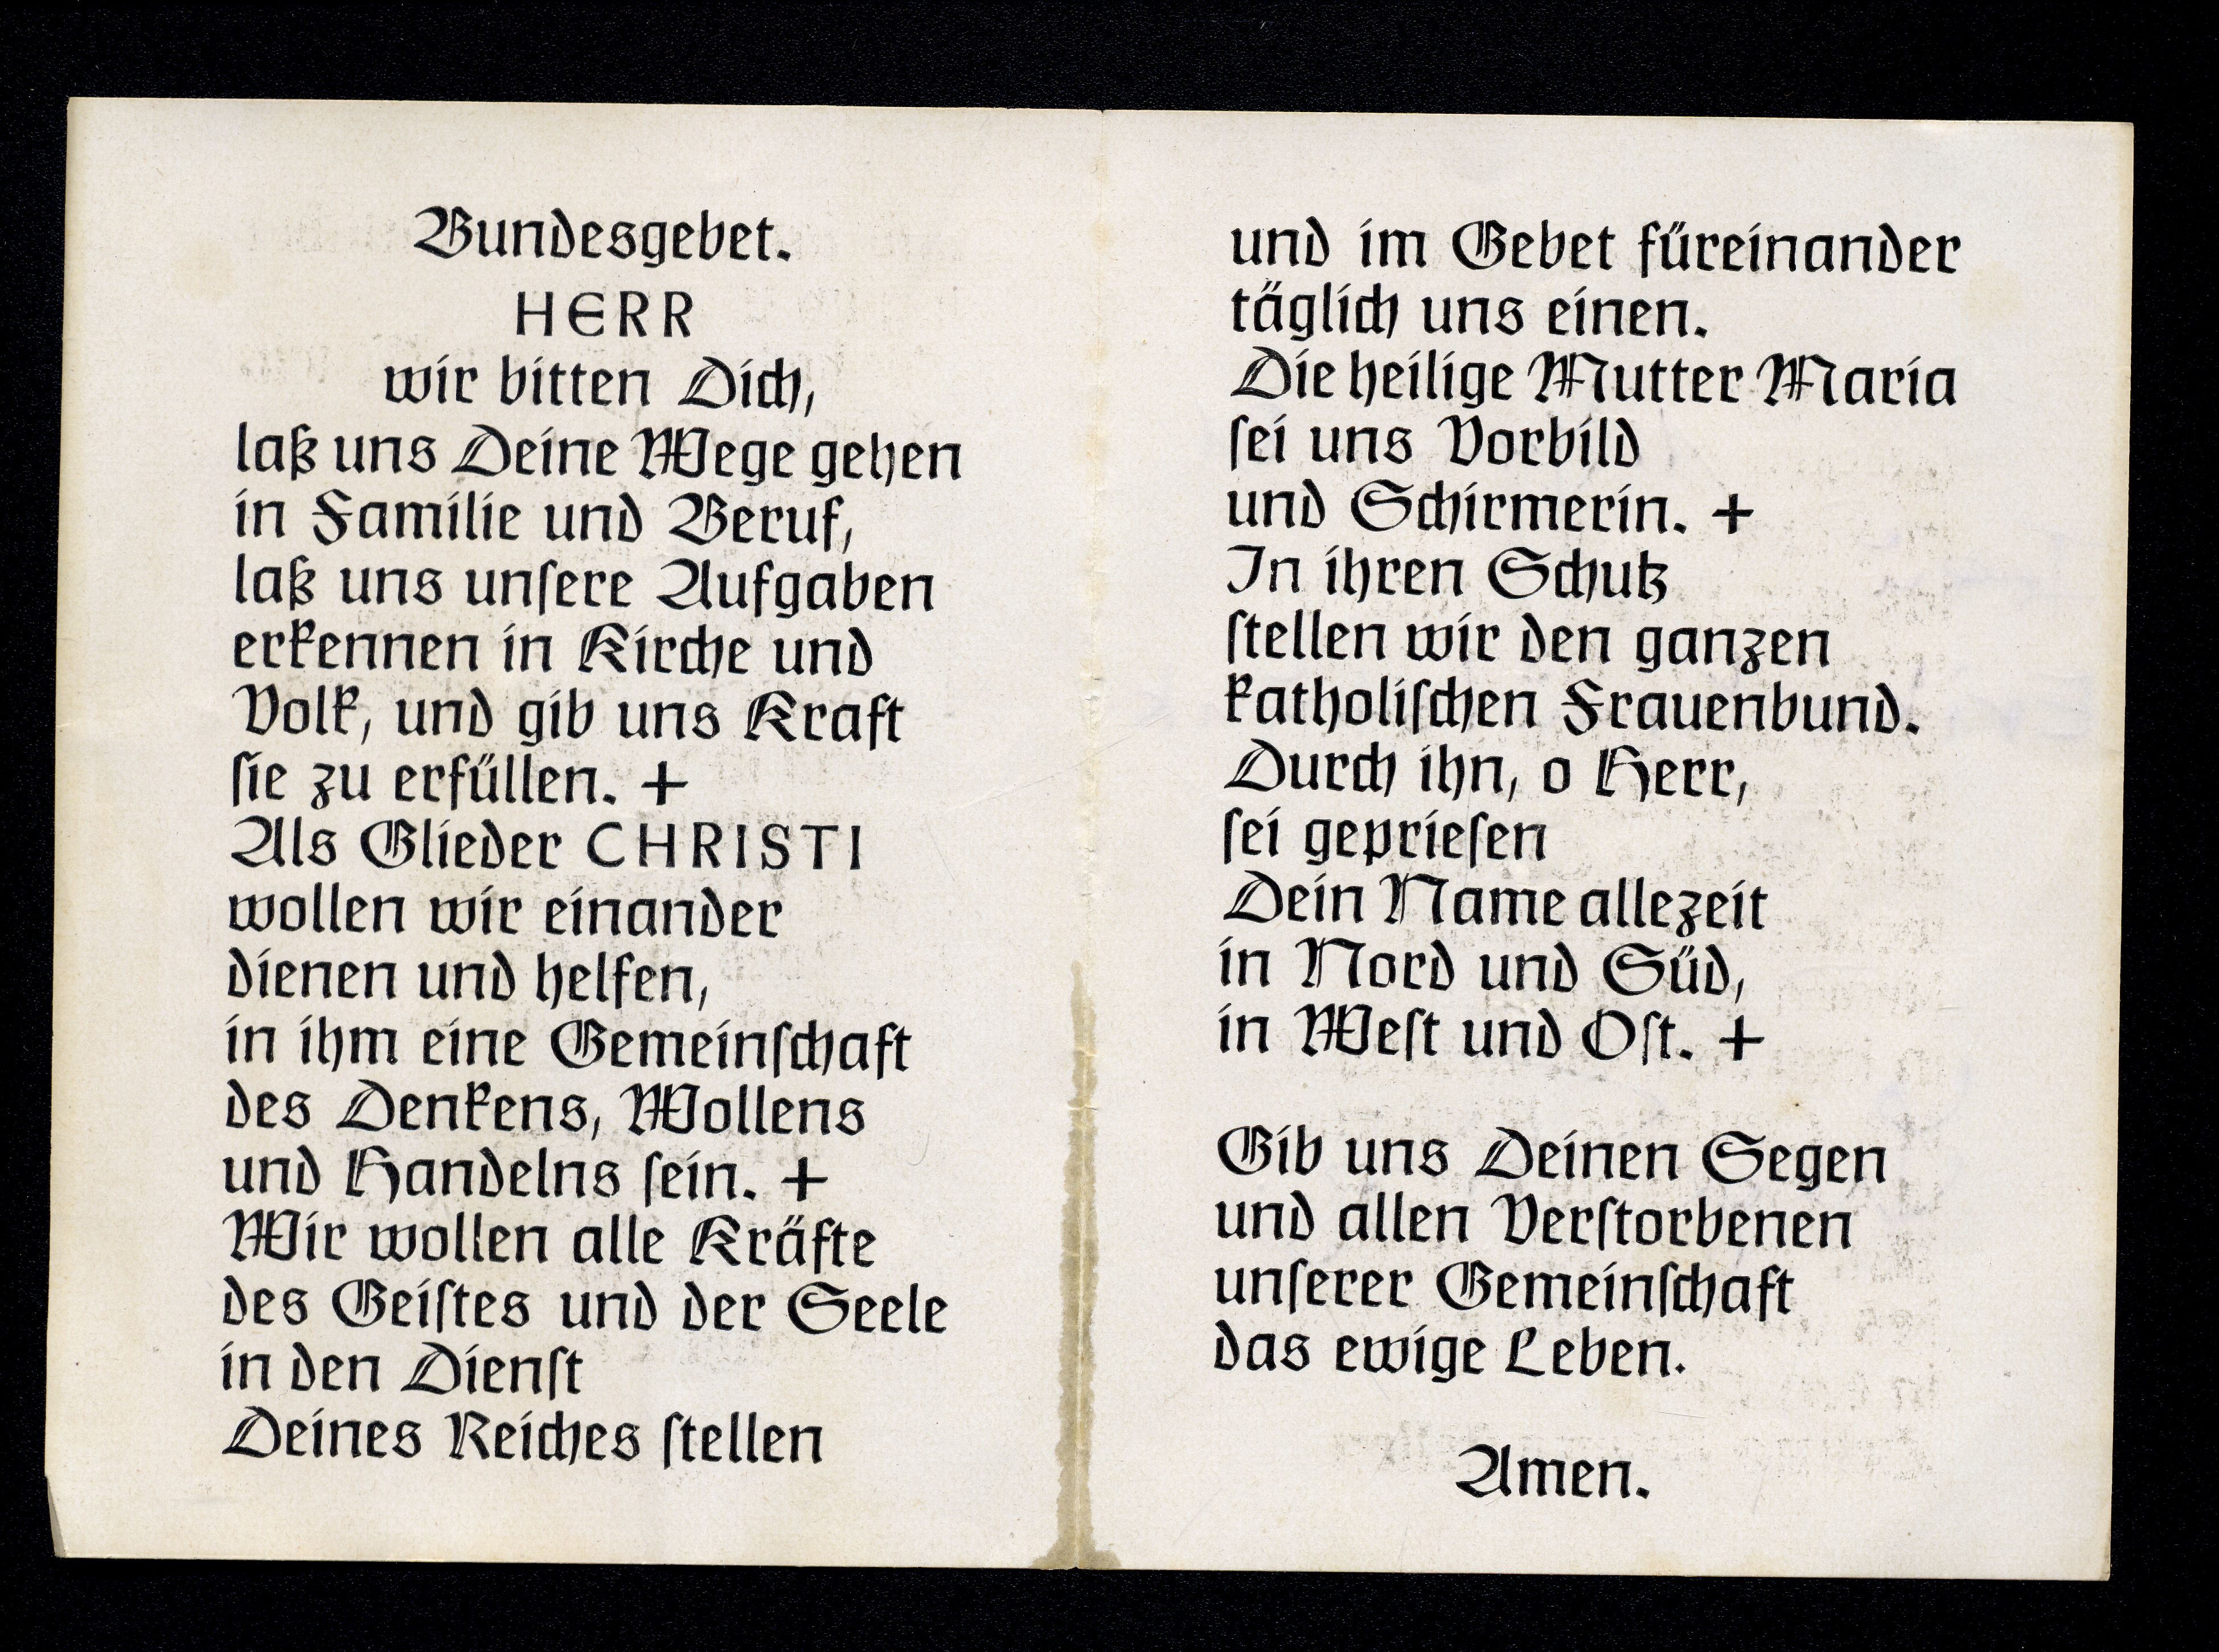 Bundesgebet.
HERR
wir bitten Dich,
laß uns Deine Wege gehen
in Familie und Beruf,
laß uns unſere Aufgaben
erkennen in Kirche und
Volk, und gib uns Kraft
ſie zu erfüllen. +
Als Glieder CHRISTI
wollen wir einander
dienen und helfen,
in ihm eine Gemeinſchaft
des Denkens, Wollens
und Handelns ſein. +
Wir wollen alle Kräfte
des Geiſtes und der Seele
in den Dienſt
Deines Reiches ſtellen
und im Gebet füreinander
täglich uns einen.
Die heilige Mutter Maria
ſei uns Vorbild
und Schirmerin. +
In ihren Schutz
ſtellen wir den ganzen
katholiſchen Frauenbund.
Durch ihn, o Herr,
ſei geprieſen
Dein Name allezeit
in Nord und Süd,
in Weſt und Oſt. +
Gib uns Deinen Segen
und allen Verſtorbenen
unſerer Gemeinſchaft
das ewige Leben.
Amen.